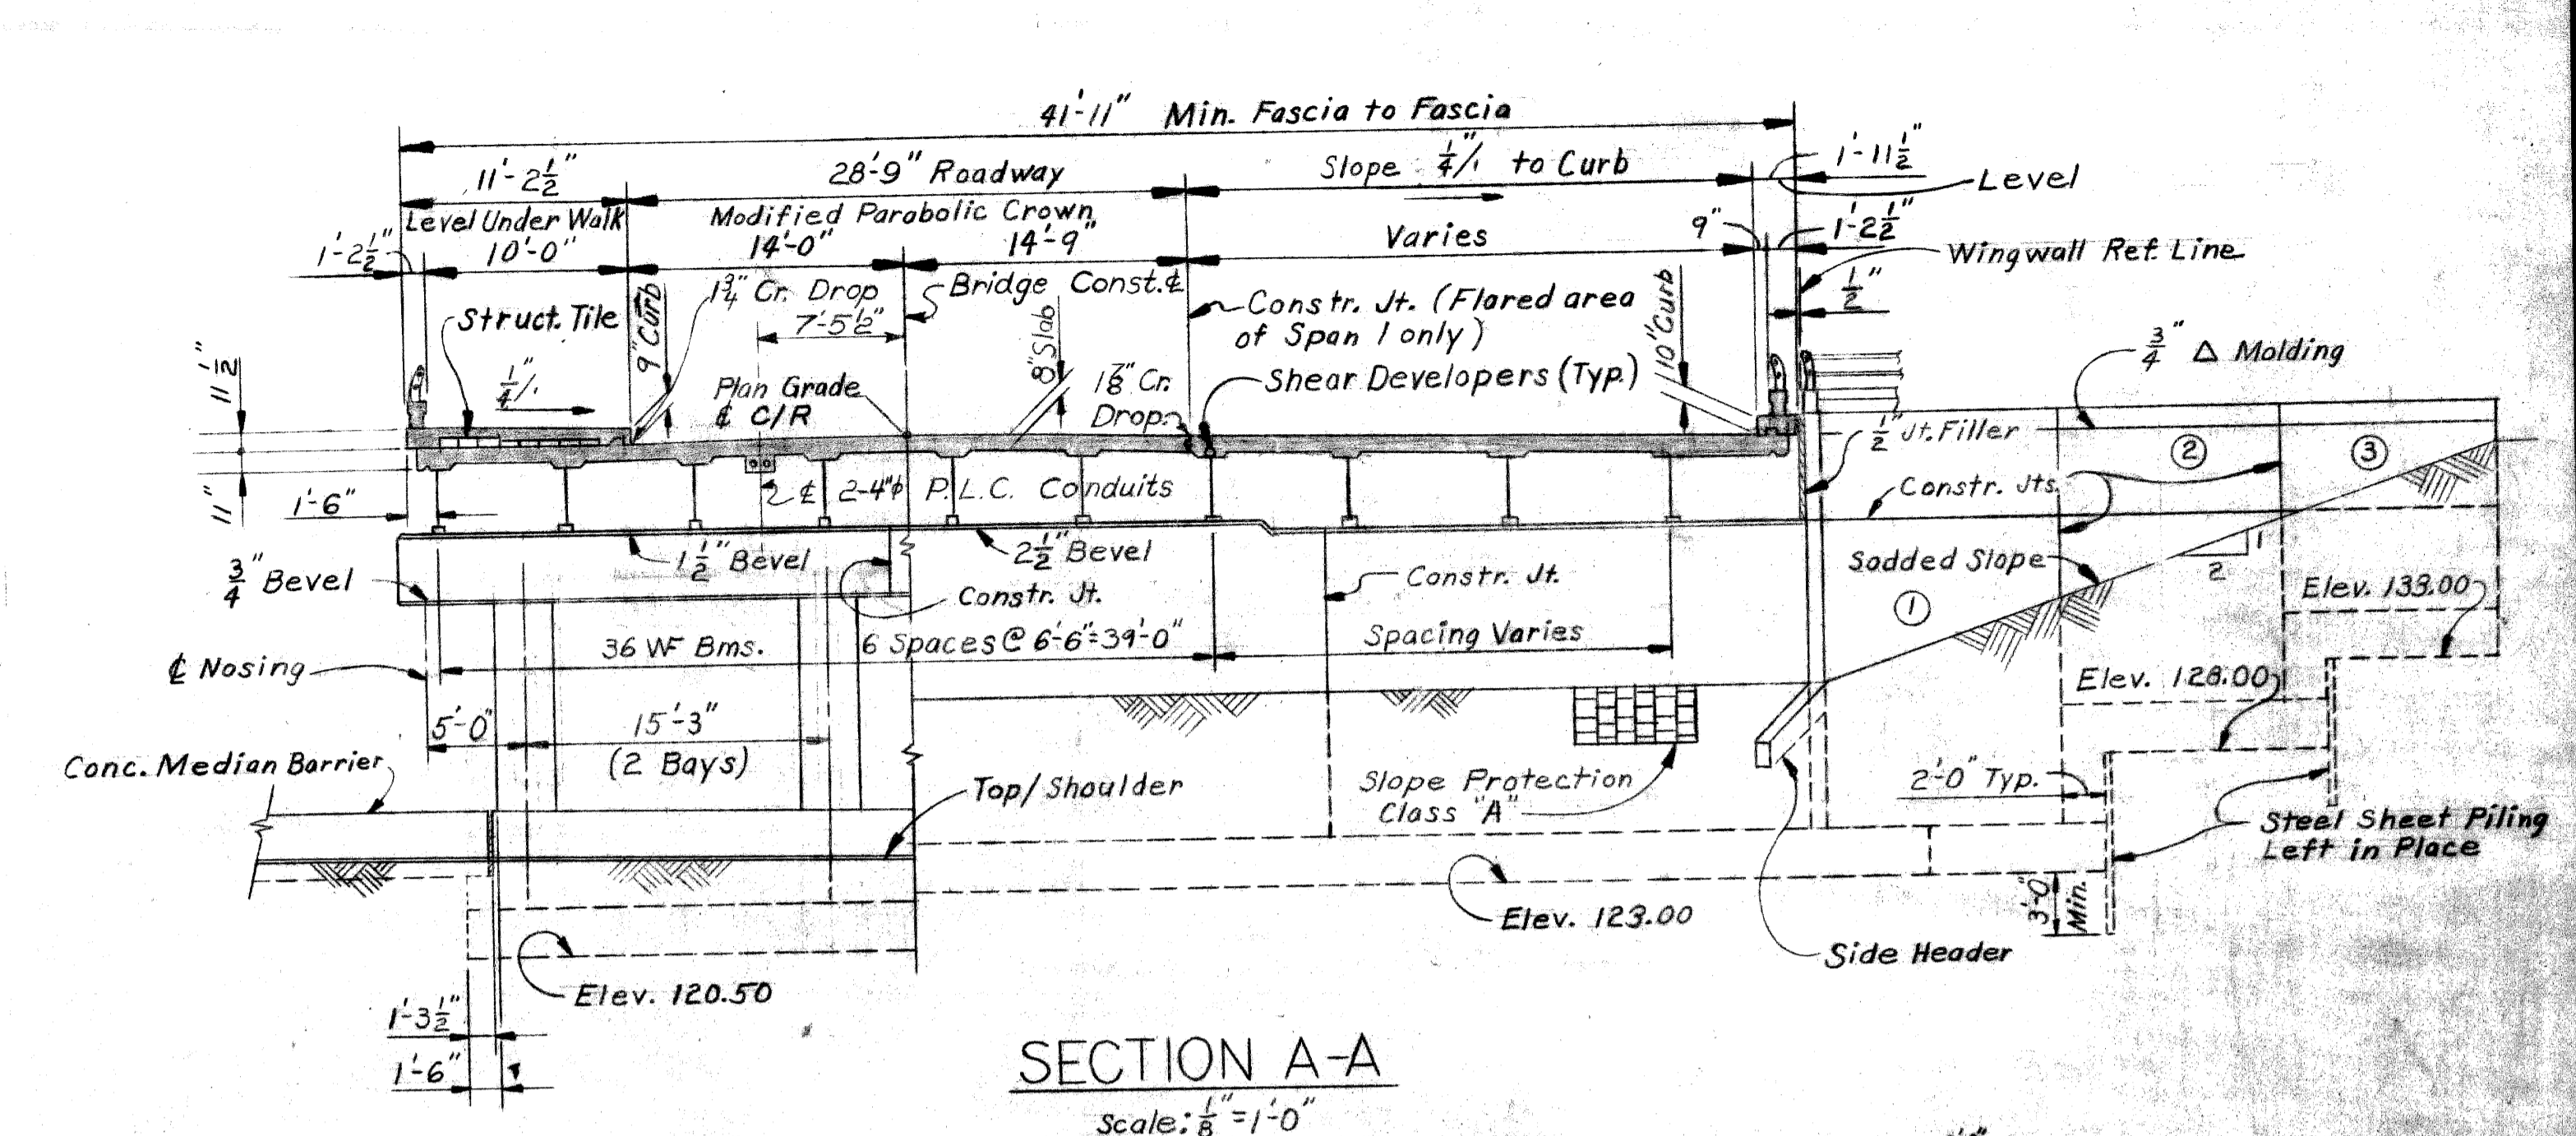 41'-11" Min. Fascia to Fascia
11'-2 1/2"
28'-9" Roadway
Slope 1/4"/' to Curb
1'-11 1/2"
Level
Level Under Walk
Modified Parabolic Crown
1'-2 1/2"
10'-0"
14'-0"
14'-9"
Varies
9"
1'-2 1/2"
Wingwall Ref. Line
Struct. Tile
9" Curb
1 3/4" Cr. Drop
7'-5 1/2"
Bridge Const. ℄
8" Slab
Constr. Jt. (Flared area
of Span 1 only)
10" Curb
1/2"
11 1/2"
1/4"/'
Plan Grade
℄ C/R
1 7/8" Cr.
Drop
Shear Developers (Typ.)
3/4" Δ Molding
1/2" Jt. Filler
2
3
11"
1'-6"
℄ 2-4"φ P.L.C. Conduits
Constr. Jts.
3/4" Bevel
1 1/2" Bevel
2 1/2" Bevel
Constr. Jt.
Constr. Jt.
Sodded Slope
1
2
1
Elev. 133.00
36 WF Bms.
6 Spaces @ 6'-6"=39'-0"
Spacing Varies
℄ Nosing
Elev. 128.00
5'-0"
15'-3"
(2 Bays)
Conc. Median Barrier
Top/Shoulder
Slope Protection
Class "A"
2'-0" Typ.
Steel Sheet Piling
Left in Place
3'-0"
Min.
Elev. 123.00
Side Header
Elev. 120.50
1'-3 1/2"
1'-6"
SECTION A-A
Scale: 1/8"=1'-0"